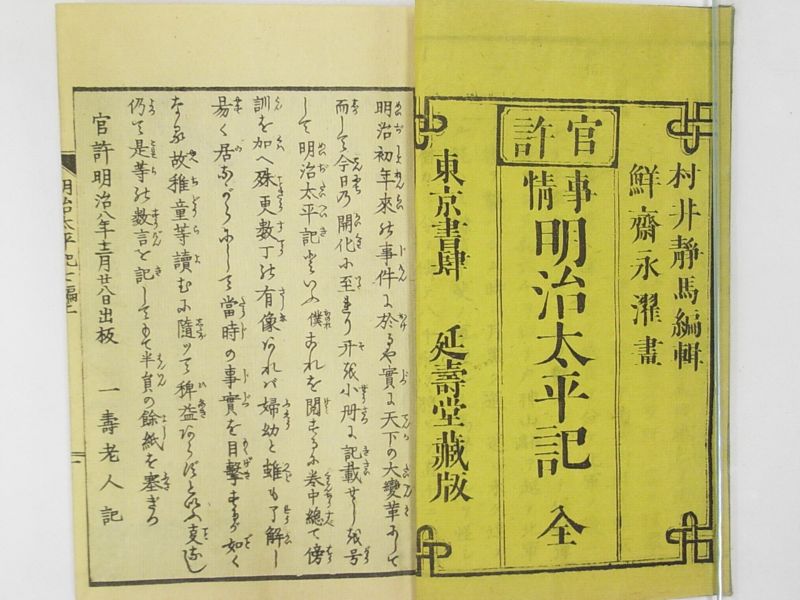 村井靜馬編輯
鮮齋永濯畫
官許
事情
明治太平記 全
東京書肆 延壽堂藏版
明治初年來の事件に於るや實に天下の大變革にして
而して今日乃開化に至れり 小册に記載せしを号
して明治太平記といふ僕これを閲するに巻中總て傍
訓を加へ殊更数丁の有像あれバ婦幼と雖も了解し
易く居ながらにして當時の事實を目撃するが如く
なる故稚童等讀むに隨ッて稗益
仍て是等の数言を記してもて半頁の餘紙を塞ぎぬ
官許明治八年十二月廿八日出板 一壽老人記
明治太平記七編上